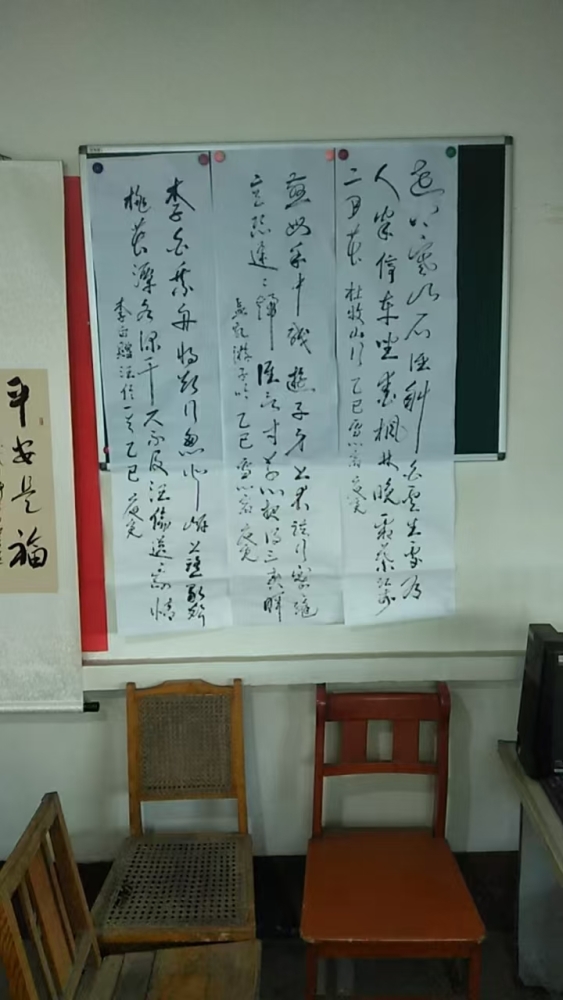 远上寒山石径斜白云生处有
人家停车坐爱枫林晚霜叶红於
二月花 杜牧山行 乙巳
慈母手中线遊子身上衣临行密密缝
意恐迟迟归 谁言寸草心报得三春晖
孟郊游子吟 乙巳
李白乘舟将欲行忽闻岸上踏歌声
桃花潭水深千尺不及汪伦送我情
李白赠汪伦一首 乙巳
平安是福